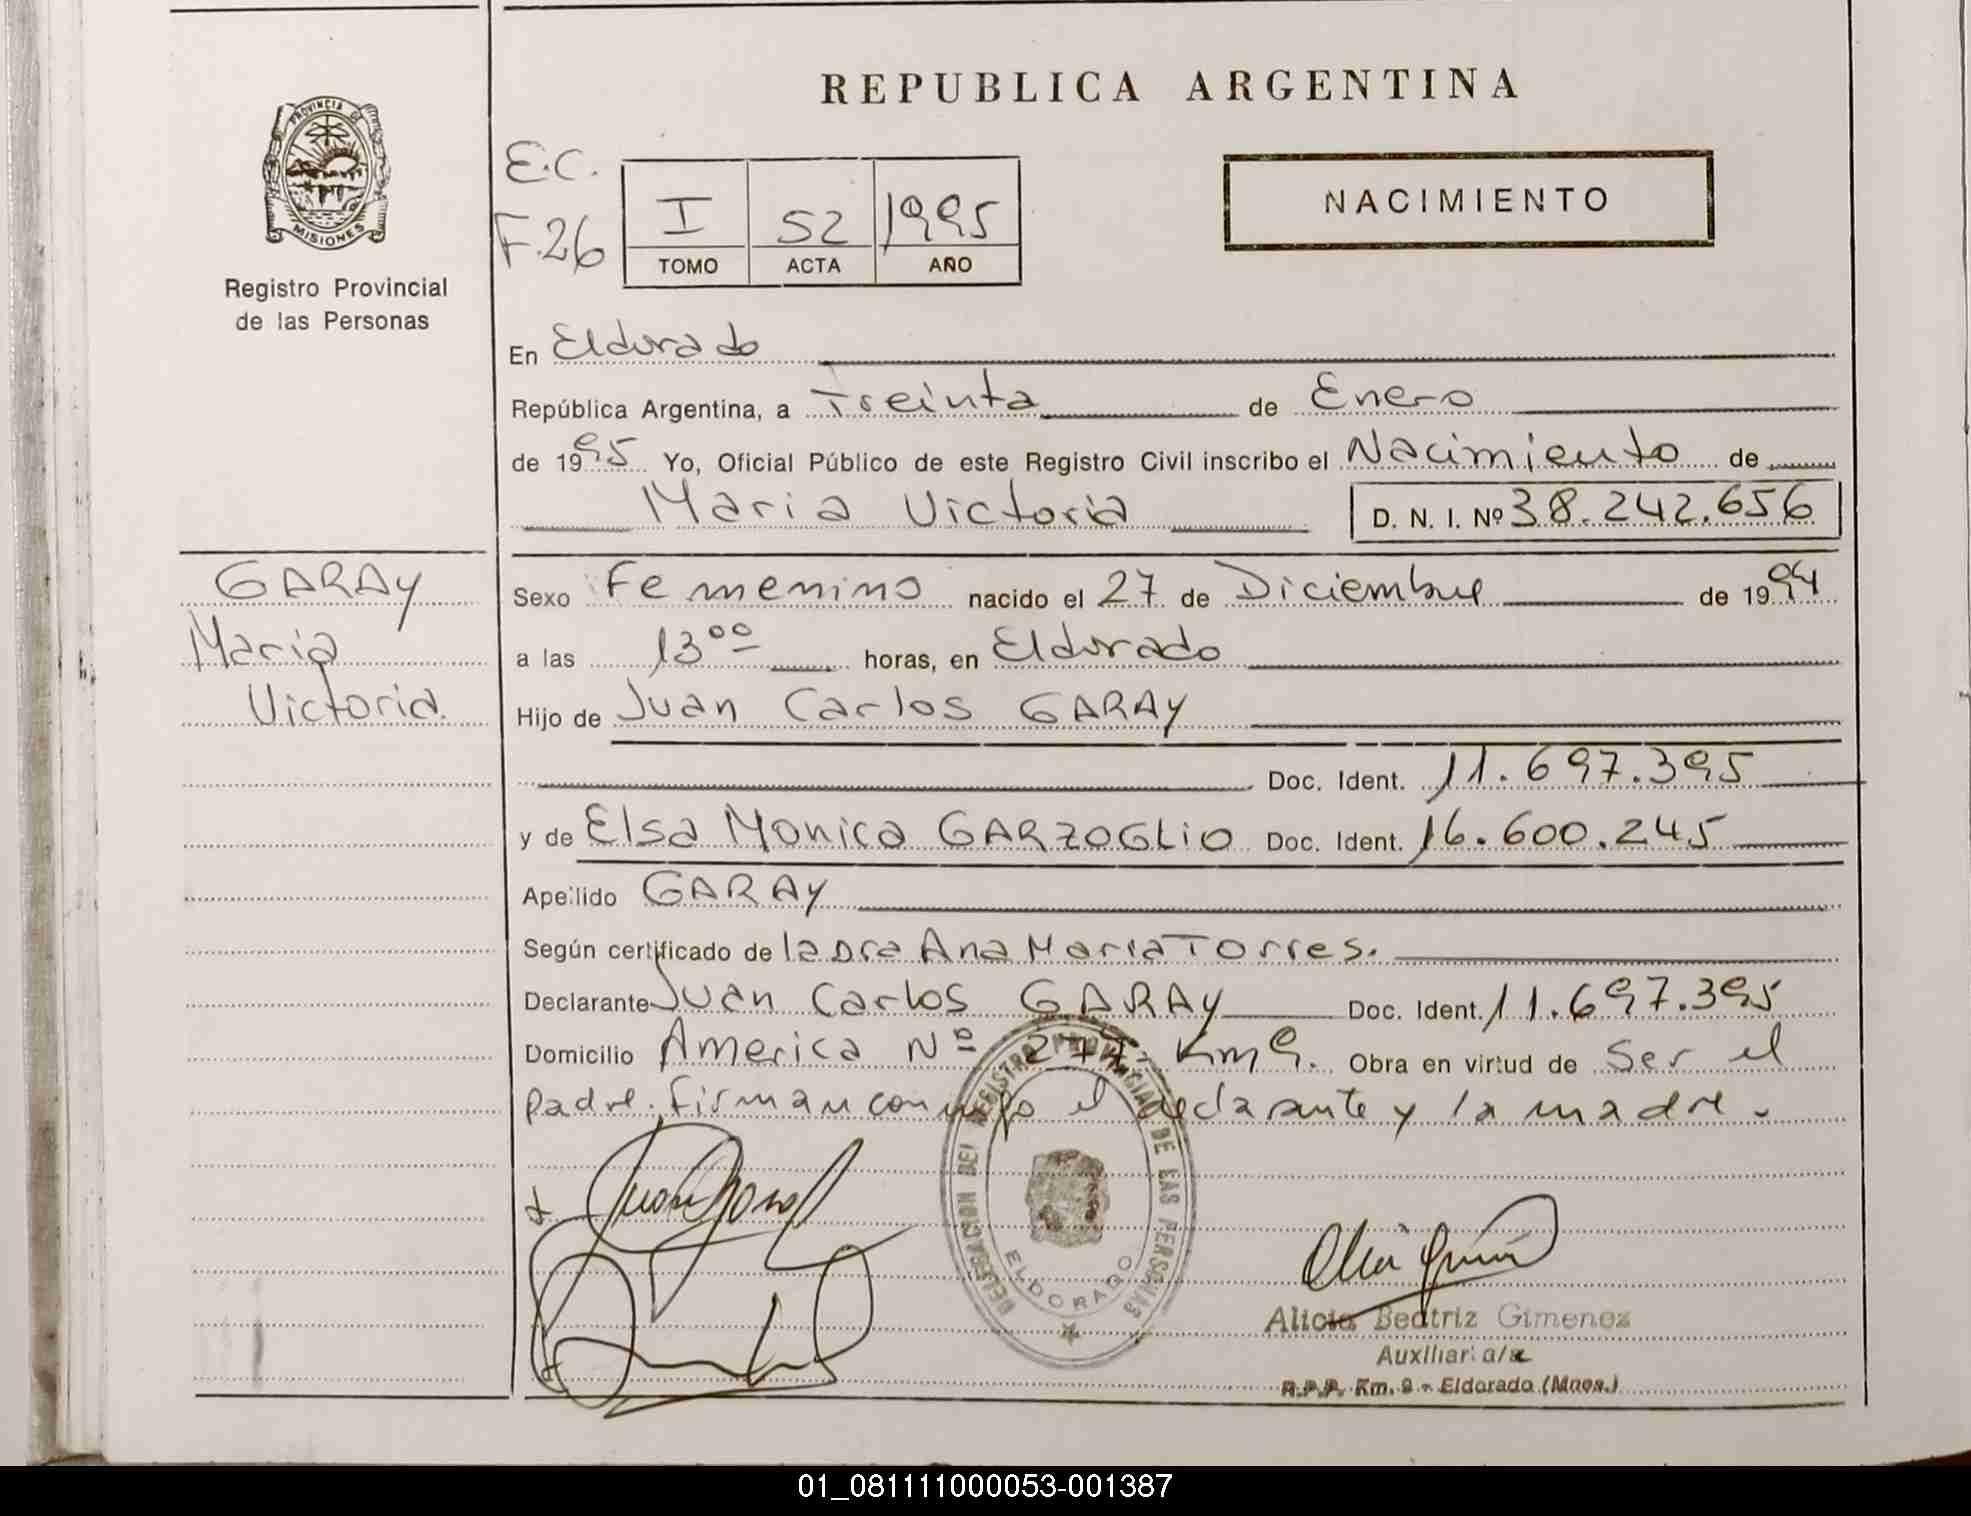 REPUBLICA ARGENTINA
PROVINCIA DE
MISIONES
Registro Provincial
de las Personas
E.C.
F.26
I 52 1995
TOMO ACTA AÑO
NACIMIENTO
En Eldorado
República Argentina, a Treinta de Enero
de 1995 Yo, Oficial Público de este Registro Civil inscribo el Nacimiento de
Maria Victoria D. N. I. Nº 38.242.656
GARAY
Maria
Victoria.
Sexo Femenino nacido el 27 de Diciembre de 1994
a las 13 00 horas, en Eldorado
Hijo de Juan Carlos GARAY
Doc. Ident. 11.697.395
y de Elsa Monica GARZOGLIO Doc. Ident. 16.600.245
Apellido GARAY
Según certificado de la Dra Ana Maria Torres.
Declarante Juan Carlos GARAY Doc. Ident. 11.697.395
Domicilio America Nº 277 Km 9. Obra en virtud de Ser el
padre. Firman conmigo el declarante y la madre.
DELEGACION DEL REGISTRO PROVINCIAL DE LAS PERSONAS
ELDORADO
Alicia Beatriz Gimenez
Auxiliar a/c
R.P.P. Km. 9 - Eldorado (Mnes.)
01_081111000053-001387